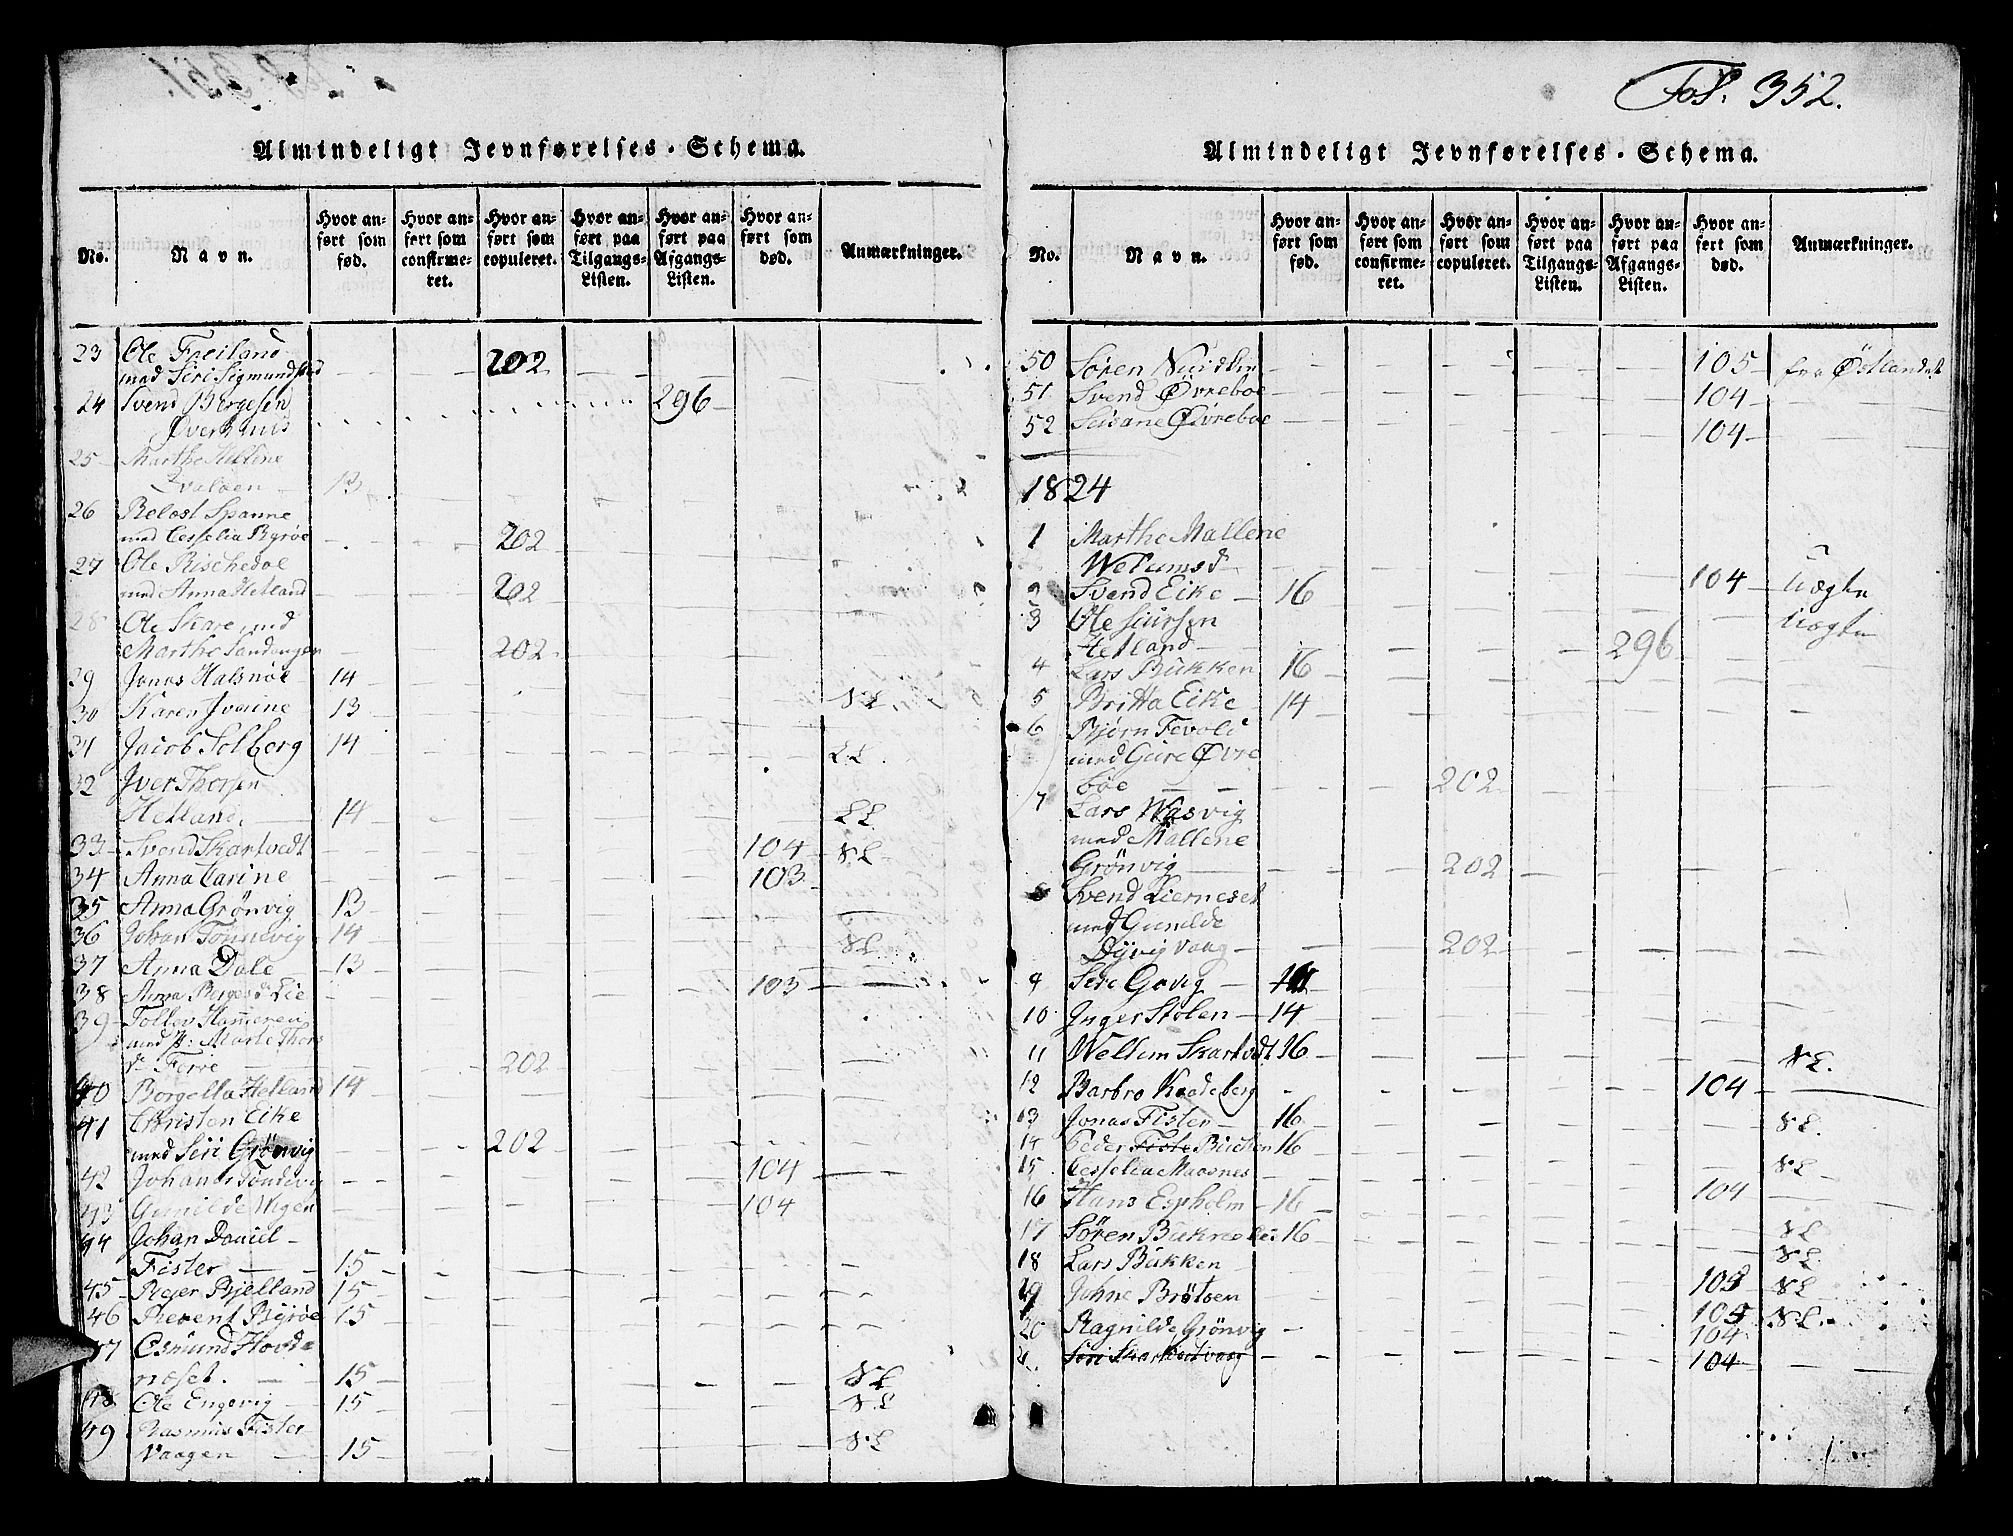 Fol. 352.
Almindeligt Jevnførelses-Schema.
No.
Navn.
Hvor anført som fød.
Hvor anført som confirmeret.
Hvor anført som copuleret.
Hvor anført paa Tilgangs-Listen.
Hvor anført paa Afgangs-Listen.
Hvor anført som død.
Anmærkninger.
23 Ole Freiland
med Siri Sigmundsd 202
24 Svend Bergesen 296
Øverhuus
25 Marthe Helline
13
26 Relost Spanne
med Cesselia Byrøe 202
27 Ole Rischedal
med Anna Hetland 202
28 Ole Skare, med
Marthe Sandangen 202
29 Jonas Halsnøe 14
30 Karen Iverine 13 NL.
31 Jacob Solberg 14 LL.
32 Iver Thorsen
Hetland. 14 LL.
33 Svend Skartvedt 104 NL
34 Anna Carine 103
35 Anna Grönvig 13
36 Johan Tonnevig 14 NL
37 Anna Dale 13
38 Anna Bergesd Lie 105
39 Tollev Hammeren
med P: Marte Thors
d. Ferre 202
40 Borgella Hetland 14
41 Christen Eike
med Siri Grönvig 202
42 Johanes Tøndevig 104
43 Gunilde Vigen 104
44 Johan Daniel
Fister 15
45 Reier Bjelland 15
46 Revent Byrøe 15
47 Esmund Hovde
neset. 15 NL
48 Ole Engevig 15 NL
49 Rasmus Fister
Vaagen 15 NL
Almindeligt Jevnførelses-Schema.
No.
Navn.
Hvor anført som fød.
Hvor anført som confirmeret.
Hvor anført som copuleret.
Hvor anført paa Tilgangs-Listen.
Hvor anført paa Afgangs-Listen.
Hvor anført som død.
Anmærkninger.
50 Søren 105 fra Østlandet
51 Svend Øvreboe 104
52 Susane Øvreboe 104
1824
1 Marthe Mallene
Welumsd 104 Uægte
2 Svend Eike 16 Uægte
3 Ole Siursen
Hetland 296
4 Lars Bukken 16
5 Britta Eike 14
6 Bjørn Tevold
med Guro Øvre
böe 202
7 Lars Wasvig
med Mallene
Grönvig 202
8 Svend Lierneset
med Gunilde
Dyvig Vaag 202
9 Siri Gavig 16
10 Inger Stolen 14
11 Wellem Skartvedt 16 NL.
12 Barbro Kaadeberg 104
13 Jonas Fister 16 NL.
14 Peder Fiste Bucken 16
15 Cesselia Maasnes 104 NL
16 Hans Espholm 16
17 Sören 16 NL
18 Lars Bukken 103 NL
19 Johne Brötsen 105 NL
20 Ragnilde Grönvig 104 NL.
21. Siri Skartvedtvaag 104